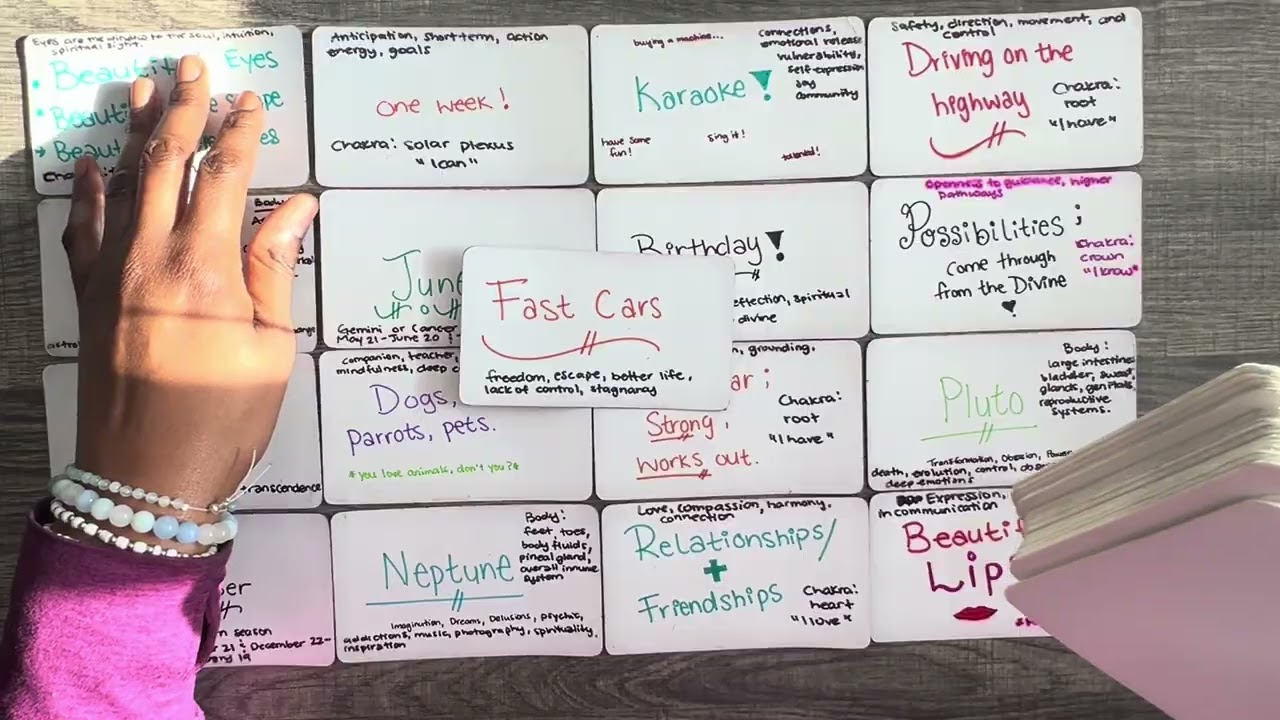 Eyes are the window to the soul, intuition,
spiritual sight.
Eyes
Anticipation, short-term, action
energy, goals
One week!
Chakra: solar plexus
"I can"
buying a machine...
connections,
emotional release
vulnerability,
self-expression
joy
community
Karaoke!
have some
fun!
sing it!
talented!
Safety, direction, movement, and
control
Driving on the
highway
Chakra:
root
"I have"
June
Gemini or Cancer
May 21-June 20
Birthday!
reflection, spiritual
divine
openness to guidance, higher
pathways
Possibilities ;
come through
from the Divine
Chakra:
crown
"I know"
Fast Cars
freedom, escape, better life,
lack of control, stagnancy
transcendence
companion, teacher,
mindfulness, deep
Dogs,
parrots, pets.
*you love animals, don't you?*
grounding.
;
Strong,
works out.
Chakra:
root
"I have"
Pluto
Body:
large intestines
bladder, sweat
glands, genitals,
reproductive
systems.
Transformation, Obsession, Power
death, evolution, control,
deep emotions
season
21 : December 22-
19
Neptune
Body:
feet, toes,
body fluids,
pineal gland,
overall immune
system
Imagination, Dreams, Delusions, psychic,
addictions, music, photography, spirituality,
inspiration
Love, compassion, harmony,
connection
Relationships/
+
Friendships
Chakra:
heart
"I love"
Expression,
in communication